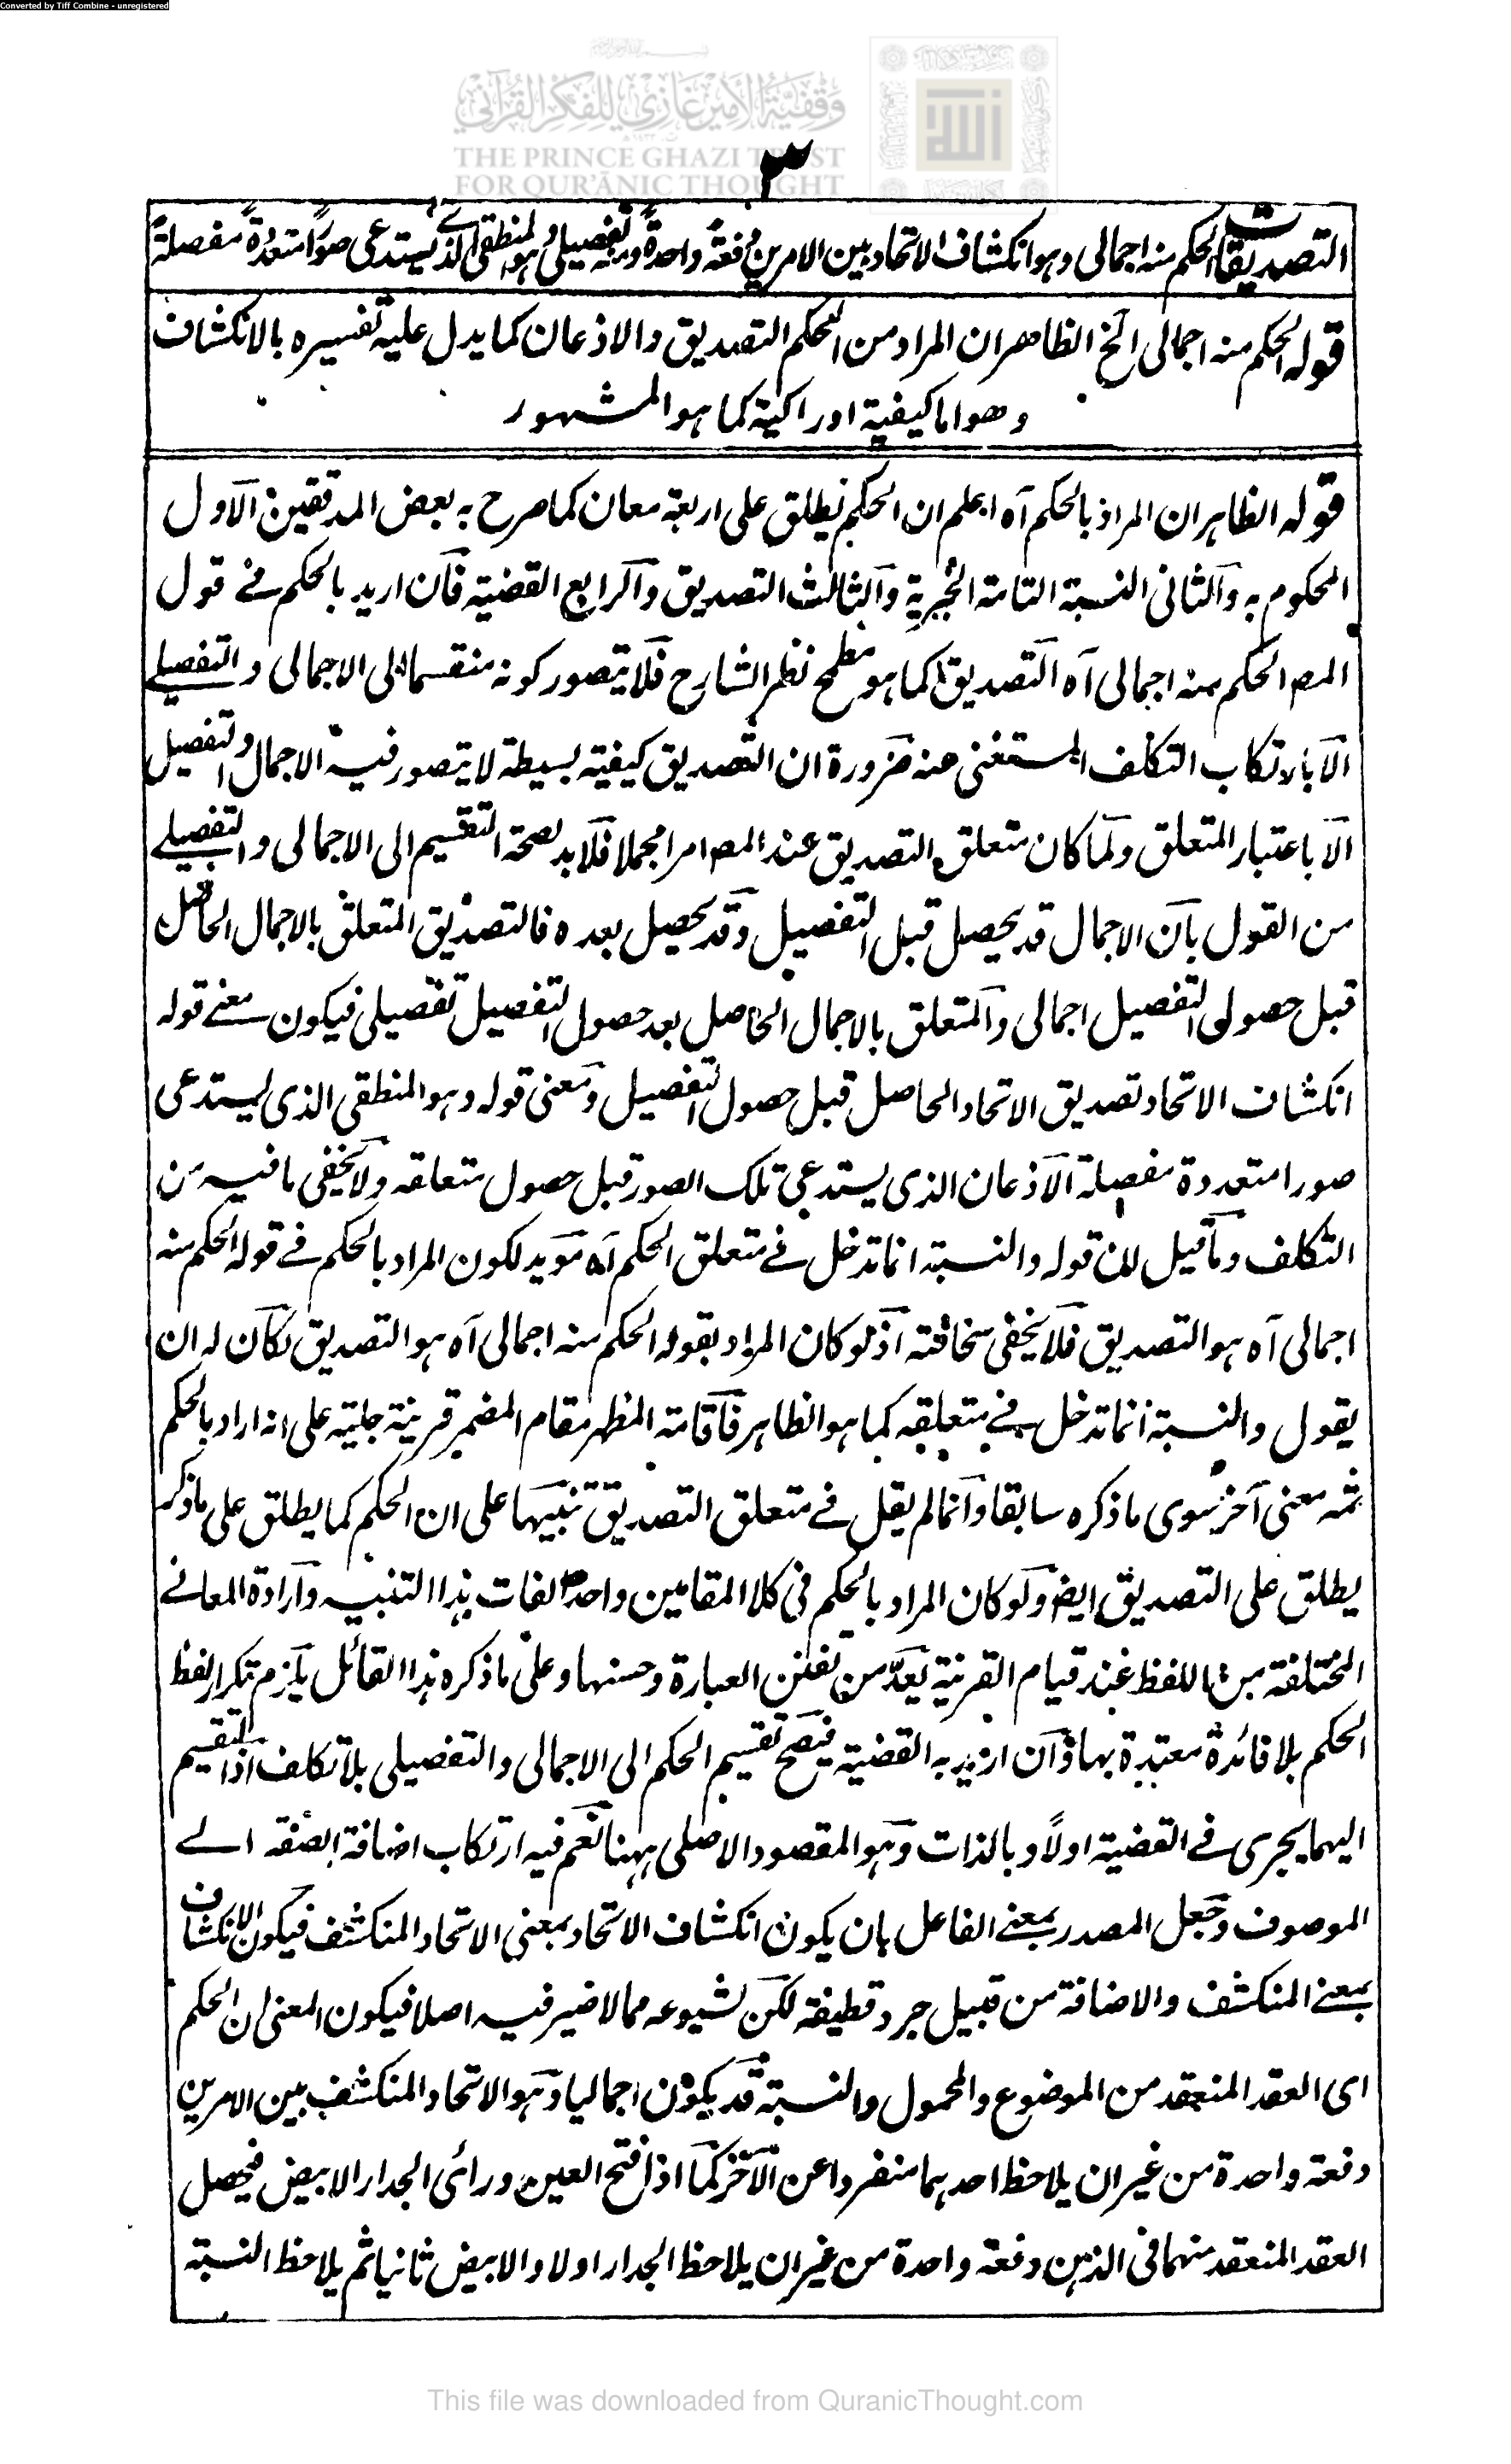 Converted by Tiff Combine - unregistered
وقفية الأمير غازي للفكر القرآني
THE PRINCE GHAZI TRUST
FOR QUR'ĀNIC THOUGHT
٣
التصديقات الحكم منه اجمالى وهو انكشاف الاتحاد بين الامرين دفعة واحدة ومنه تفصيلى وهو المنطقى الذى يستدعى صورا متعددة مفصلة
قوله الحكم منه اجمالى الخ الظاهر ان المراد من الحكم التصديق والاذعان كما يدل عليه تفسيره بالانكشاف
وهو اما كيفية ادراكية كما هو المشهور
قوله الظاهر ان المراد بالحكم آه اعلم ان الحكم يطلق على اربعة معان كما صرح به بعض المدققين الاول
المحكوم به والثانى النسبة التامة الخبرية والثالث التصديق والرابع القضية فان اريد بالحكم فى قول
المص الحكم منه اجمالى آه التصديق كما هو مطمح نظر الشارح فلا يتصور كونه منقسما الى الاجمالى والتفصيلى
الا بارتكاب التكلف المستغنى عنه ضرورة ان التصديق كيفية بسيطة لا يتصور فيه الاجمال والتفصيل
الا باعتبار المتعلق ولما كان متعلق التصديق عند المص امرا مجملا فلا بد لصحة التقسيم الى الاجمالى والتفصيلى
من القول بان الاجمال قد يحصل قبل التفصيل وقد يحصل بعده فالتصديق المتعلق بالاجمال الحاصل
قبل حصول التفصيل اجمالى والمتعلق بالاجمال الحاصل بعد حصول التفصيل تفصيلى فيكون معنى قوله
انكشاف الاتحاد تصديق الاتحاد الحاصل قبل حصول التفصيل ومعنى قوله وهو المنطقى الذى يستدعى
صورا متعددة مفصلة الاذعان الذى يستدعى تلك الصور قبل حصول متعلقه ولا يخفى ما فيه من
التكلف وما قيل ان قوله والنسبة انما تدخل فى متعلق الحكم آه مؤيد لكون المراد بالحكم فى قوله الحكم منه
اجمالى آه هو التصديق فلا يخفى سخافته اذ لو كان المراد بقوله الحكم منه اجمالى آه هو التصديق لكان له ان
يقول والنسبة انما تدخل فى متعلقه كما هو الظاهر فاقامة المظهر مقام المضمر قرينة جلية على انه اراد بالحكم
ثمه معنى آخر سوى ما ذكره سابقا وانما لم يقل فى متعلق التصديق تنبيها على ان الحكم كما يطلق على ما ذكر
يطلق على التصديق ايضا ولو كان المراد بالحكم فى كلا المقامين واحدا لفات هذا التنبيه وارادة المعانى
المختلفة من اللفظ عند قيام القرينة يعد من تفنن العبارة وحسنها وعلى ما ذكره هذا القائل يلزم تكرار لفظ
الحكم بلا فائدة معتدة بها وان اريد به القضية فيصح تقسيم الحكم الى الاجمالى والتفصيلى بلا تكلف اذ التقسيم
اليهما يجرى فى القضية اولا وبالذات وهو المقصود الاصلى ههنا نعم فيه ارتكاب اضافة الصفة الى
الموصوف وجعل المصدر بمعنى الفاعل بان يكون انكشاف الاتحاد بمعنى الاتحاد المنكشف فيكون الانكشاف
بمعنى المنكشف والاضافة من قبيل جرد قطيفة لكن لشيوعه مما لا ضير فيه اصلا فيكون المعنى ان الحكم
اى العقد المنعقد من الموضوع والمحمول والنسبة قد يكون اجماليا وهو الاتحاد المنكشف بين الامرين
دفعة واحدة من غير ان يلاحظ احدهما منفردا عن الآخر كما اذا فتح العين ورأى الجدار الابيض فيحصل
العقد المنعقد منهما فى الذهن دفعة واحدة من غير ان يلاحظ الجدار اولا والابيض ثانيا ثم يلاحظ النسبة
This file was downloaded from QuranicThought.com